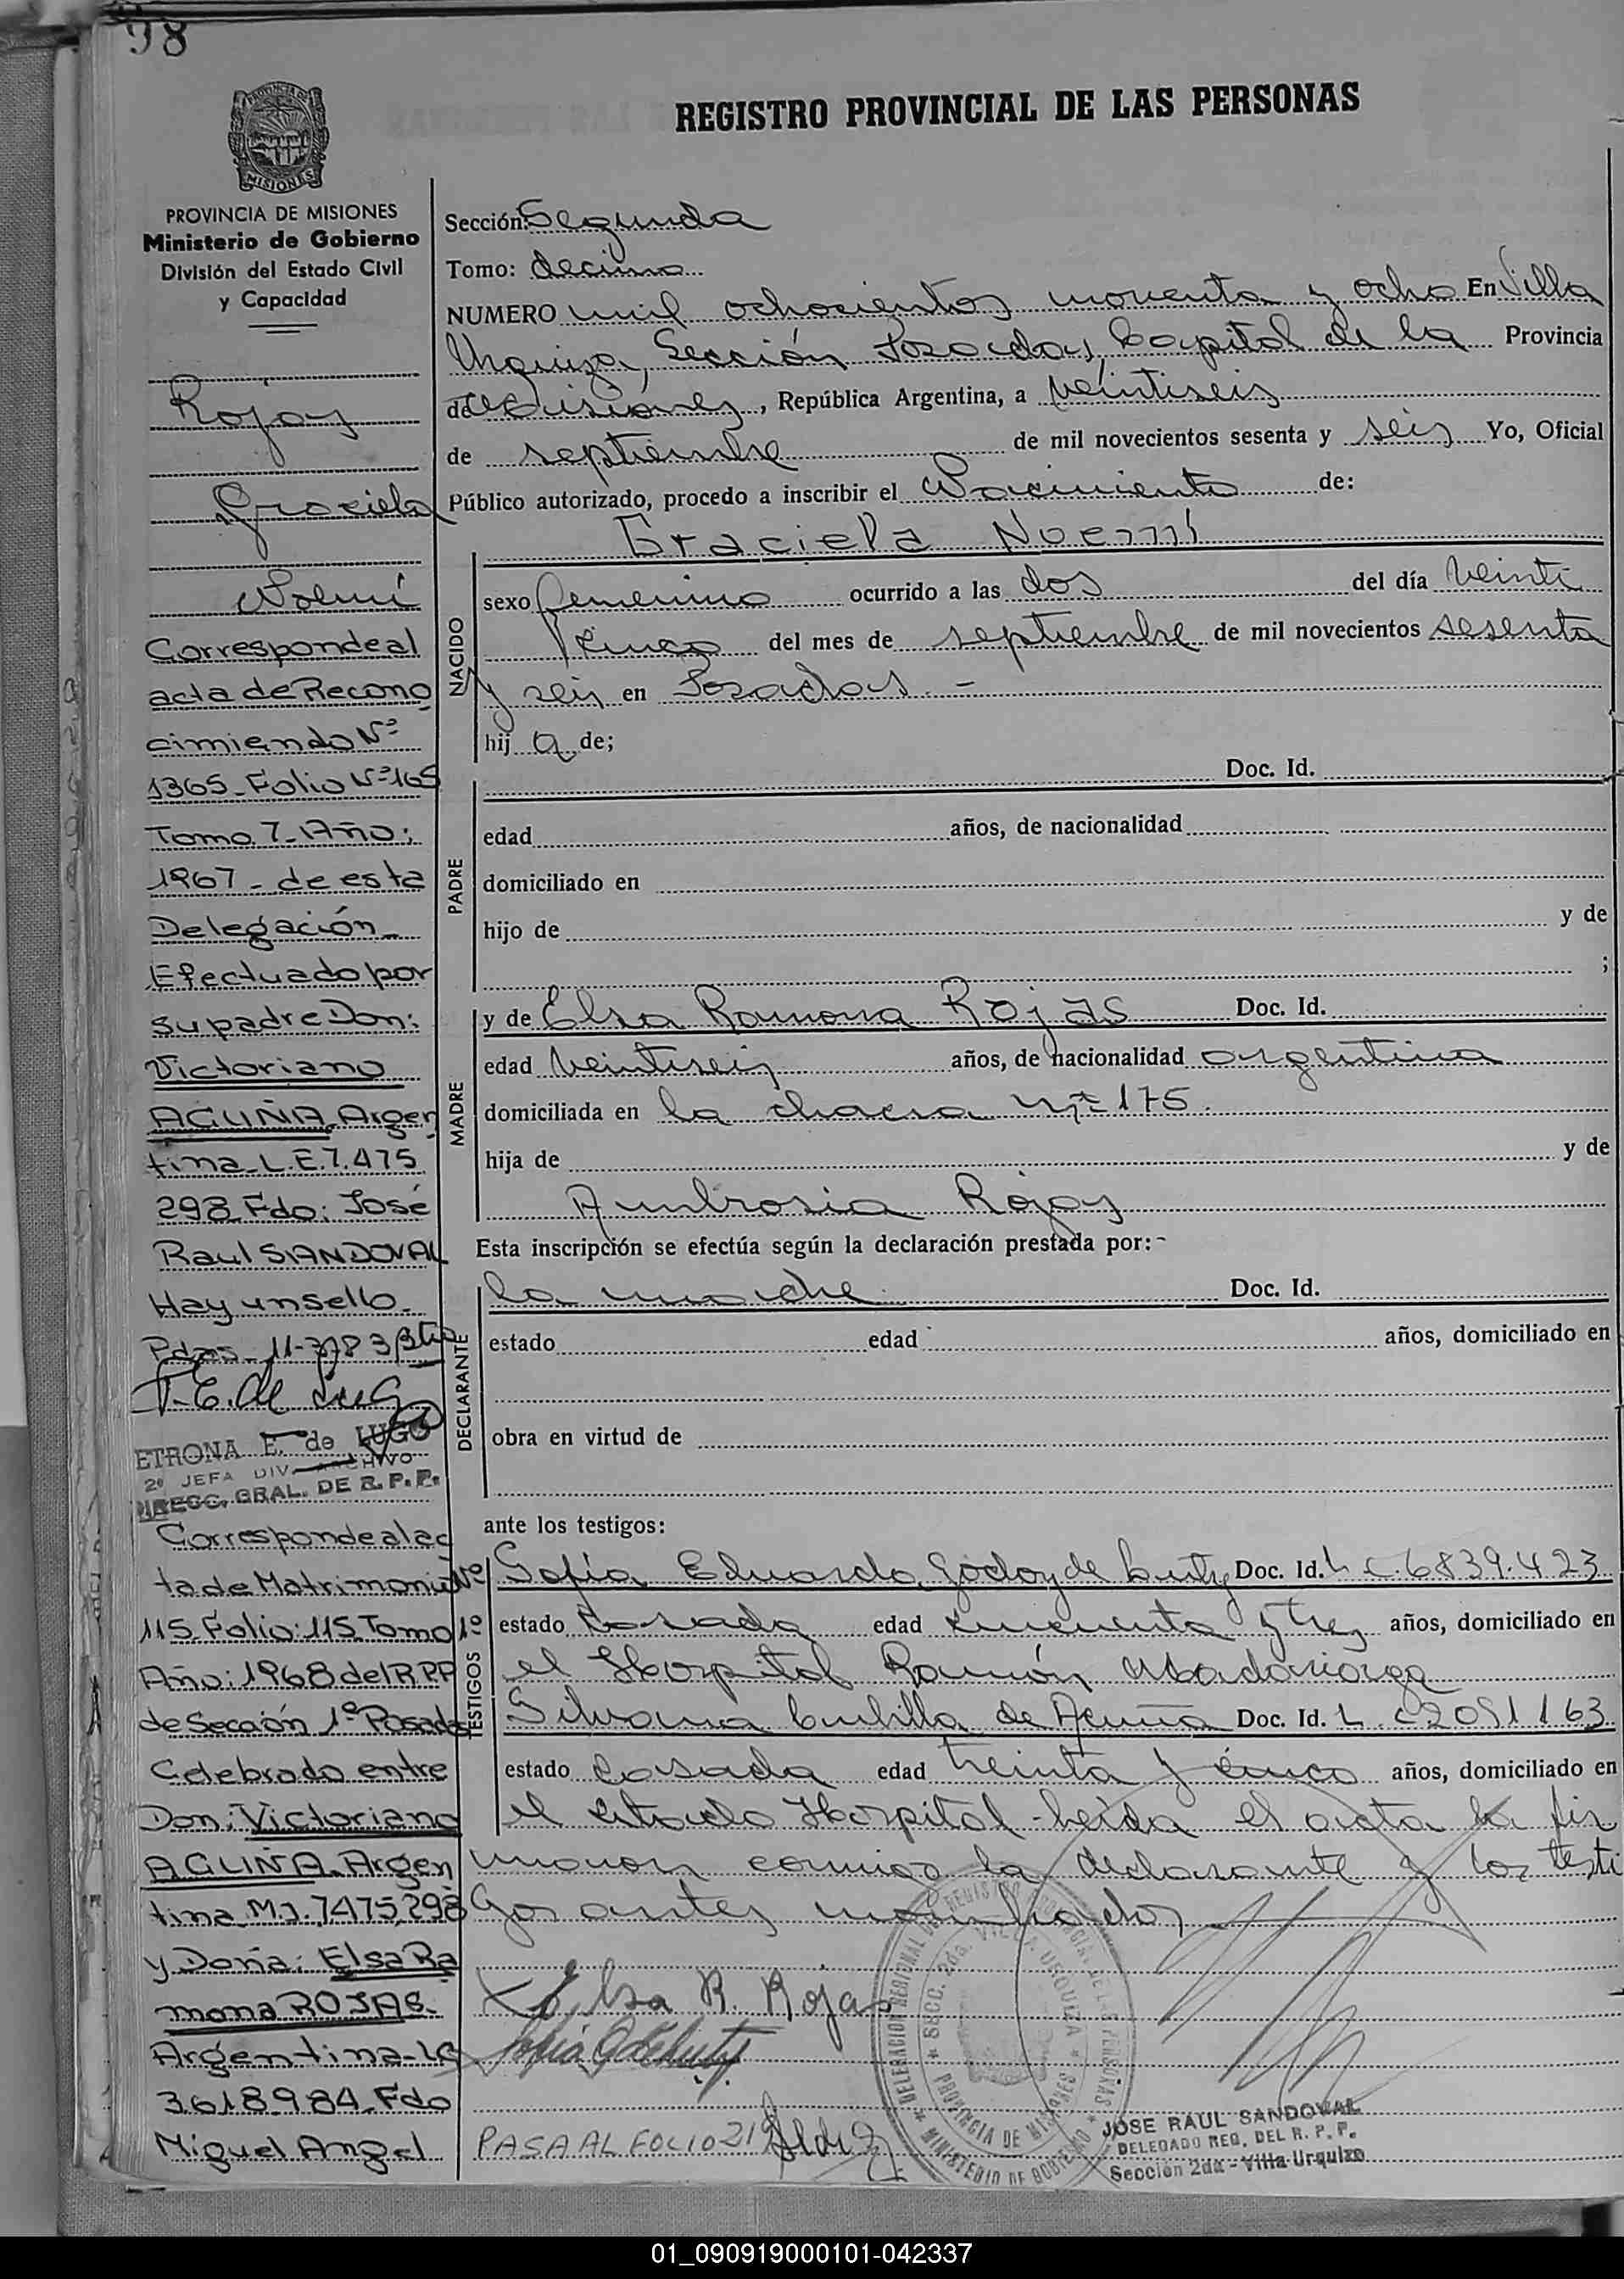 98
REGISTRO PROVINCIAL DE LAS PERSONAS
PROVINCIA DE
MISIONES
PROVINCIA DE MISIONES
Ministerio de Gobierno
División del Estado Civil
y Capacidad
Rojas
Graciela
Noemí
Corresponde al
acta de Recono
cimiendo Nº
1365_Folio Nº165
Tomo 7_Año:
1967_de esta
Delegación_
Efectuado por
su padre Don:
Victoriano
ACUÑA. Argen
tina_L.E.7.475
298_Fdo: José
Raul SANDOVAL
Hay un sello_
Pdas_11-3/83
ETRONA E. de LUGO
2º JEFA DIV. ARCHIVO
DIRECC. GRAL. DE R.P.P.
Corresponde al ac
ta de Matrimonio Nº
115 Folio:115 Tomo 1º
Año:1968 del R.P.P
de Sección 1º Posadas
Celebrado entre
Don: Victoriano
ACUÑA. Argen
tina M.I.7475298
y Doña: Elsa Ra
mona ROJAS.
Argentina-LC
3618984_Fdo
Miguel Angel
Sección: Segunda
Tomo: decimo
NUMERO mil ochocientos noventa y ocho En Villa
Urquiza, Sección Posadas, Capital de la Provincia
de Misiones, República Argentina, a veintiseis
de septiembre de mil novecientos sesenta y seis Yo, Oficial
Público autorizado, procedo a inscribir el Nacimiento de:
Graciela Noemí
NACIDO
sexo femenino ocurrido a las dos del día veinti
cinco del mes de septiembre de mil novecientos sesenta
y seis en Posadas. -
hij a de;
PADRE
Doc. Id.
edad años, de nacionalidad
domiciliado en
hijo de y de
;
MADRE
y de Elsa Ramona Rojas Doc. Id.
edad veintiseis años, de nacionalidad argentina
domiciliada en la chacra nº 175.
hija de y de
Ambrosia Rojas
Esta inscripción se efectúa según la declaración prestada por:-
DECLARANTE
la madre Doc. Id.
estado edad años, domiciliado en
obra en virtud de
ante los testigos:
TESTIGOS
Sofía Eduarda Godoy de Doc. Id. L.C.6839.423
estado casada edad cincuenta y tres años, domiciliado en
el Hospital Ramón Madariaga
Silvana Cubilla de Acuña Doc. Id. L.C 2051163
estado casada edad treinta y cinco años, domiciliado en
el citado Hospital-Leída el acta la fir
maron conmigo la declarante y los testi
gos antes nombrados
Elsa R. Rojas
PASA AL FOLIO 21
DELEGACION REGIONAL DEL REGISTRO PROVINCIAL DE LAS PERSONAS
* SECC. 2da. VILLA URQUIZA *
PROVINCIA DE MISIONES
* MINISTERIO DE GOBIERNO *
JOSE RAUL SANDOVAL
DELEGADO REG. DEL R. P. P.
Sección 2da - Villa Urquiza
01_090919000101-042337